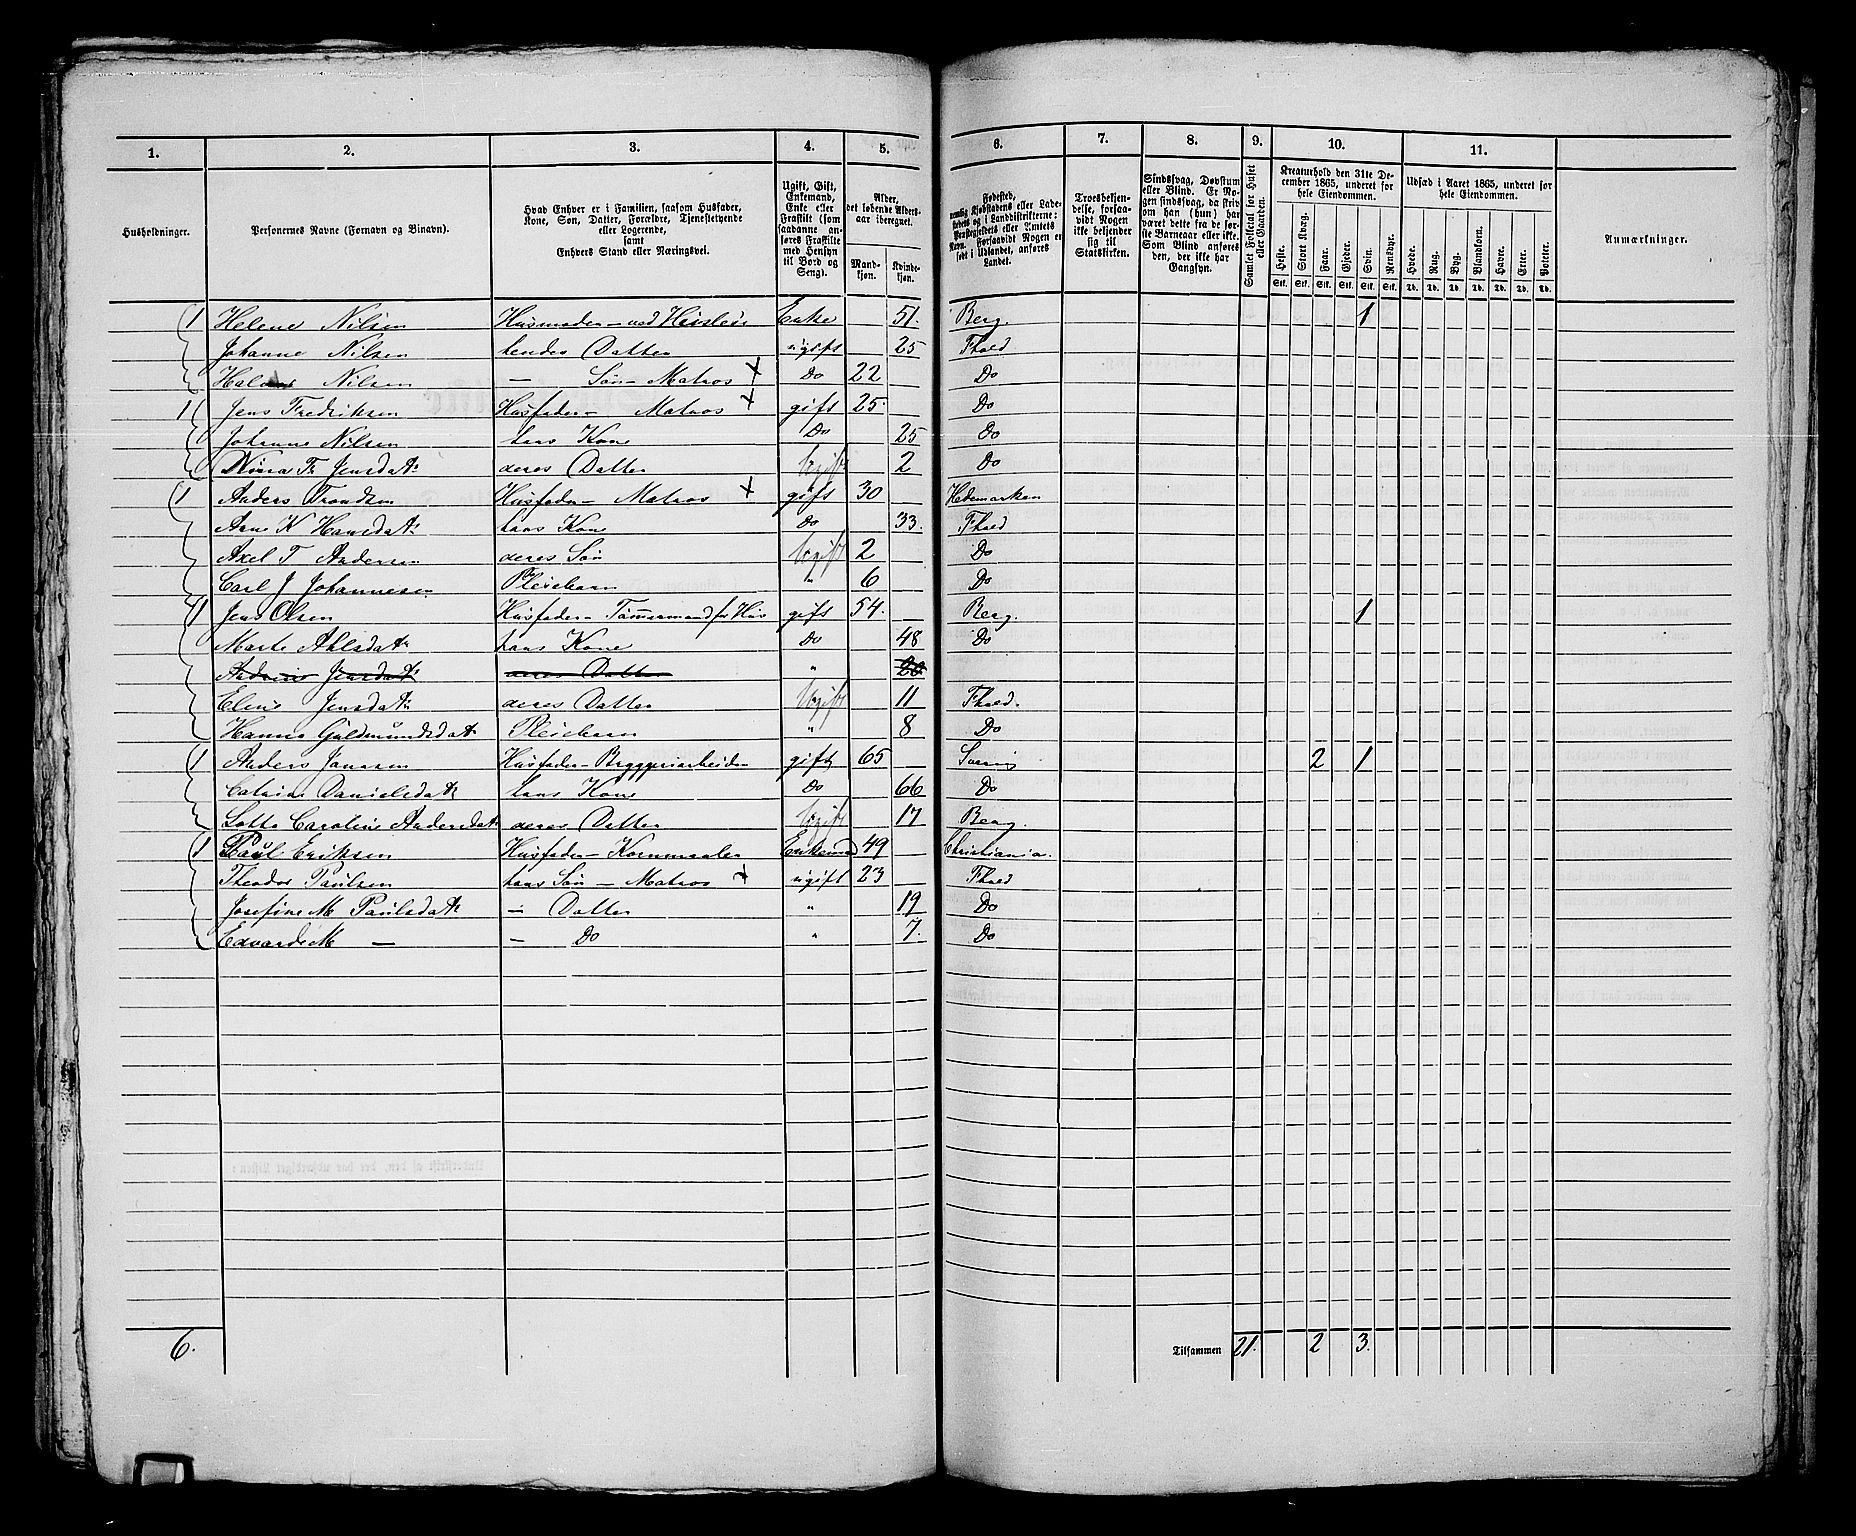 1. 2. 3. 4. 5. 6. 7. 8. 9. 10. 11.
Husholdninger.
Personernes Navne (Fornavn og Binavn).
Hvad Enhver er i Familien, saasom Husfader,
Kone, Søn, Datter, Forældre, Tjenestetyende
eller Logerende,
samt
Enhvers Stand eller Næringsvei.
Ugift, Gift,
Enkemand,
Enke eller
Fraskilt (som
saadanne an-
føres Fraskilte
med Hensyn
til Bord og
Seng).
Alder,
det løbende Alders-
aar iberegnet.
Mand-
kjøn.
Kvinde-
kjøn.
Fødested,
nemlig Kjøbstadens eller Lade-
stedets og i Landdistrikterne:
Præstegjeldets eller Amtets
Navn. Forsaavidt Nogen er
født i Udlandet, anføres
Landet.
Troesbekjen-
delse, forsaa-
vidt Nogen
ikke bekjender
sig til
Statskirken.
Sindssvag, Døvstum
eller Blind. Er No-
gen sindssvag, da skriv
om han (hun) har
været dette fra de før-
ste Barneaar eller ikke.
Som Blind anføres
den, der ikke har
Gangsyn.
Samlet Folketal for Huset
eller Gaarden.
Kreaturhold den 31te De-
cember 1865, underet for
hele Eiendommen.
Heste. Stort Kvæg. Faar. Gjeder. Svin. Rensdyr.
Stk. Stk. Stk. Stk. Stk. Stk.
Udsæd i Aaret 1865, underet for
hele Eiendommen.
Hvede. Rug. Byg. Blandkorn. Havre. Erter. Poteter.
Td. Td. Td. Td. Td. Td. Td.
Anmærkninger.
1 Helene Nilsen Husmoder - ved Huusleie Enke 51. Berg. 1
Johanne Nilsen hendes Datter ugift 25 Fhald
Nilsen — Søn - Matros + Do 22 Do
1 Jens Fredriksen Husfader - Matros + gift 25. Do
Johanne Nilsen hans Kone Do 25 Do
Nina Fr Jensdatr deres Datter Ugift 2 Do
1 Anders Trondsen Husfader - Matros + gift 30 Hedemarken
Ane K Hansdatr hans Kone Do 33. Fhald
Axel T Andersen deres Søn Ugift 2 Do
Carl J Johannesen Pleiebarn " 6 Do
1 Jens Olsen Husfader - Tømmermand for Hus gift 54. Berg. 1
Marte Ahlsdatr hans Kone Do 48 Do
Andrine Jensdatr deres Datter " 20
Eline Jensdatr deres Datter Ugift 11 Fhald.
Hanna Guldmundsdatr Pleiebarn " 8 Do
1 Anders Jansen Husfader - Bryggeriarbeider gift 65 Sverig 2 1
Catrine Danielsdatr hans Kone Do 66 Do
Lotte Caroline Andersdatr deres Datter Ugift 17 Berg.
1 Paul Eriksen Husfader - Kornmaaler Enkemand 49 Christiania.
Theodor Paulsen hans Søn - Matros + ugift 23 Fhald
Josefine M Paulsdatr — Datter " 19 Do
Edvarde M — — Do " 7. Do
6. Tilsammen 21. 2 3.